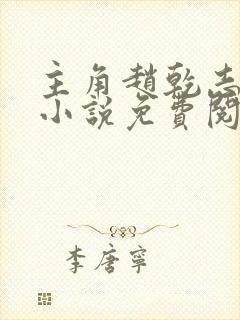 主角趙乾志
小說免費閱
李唐寧